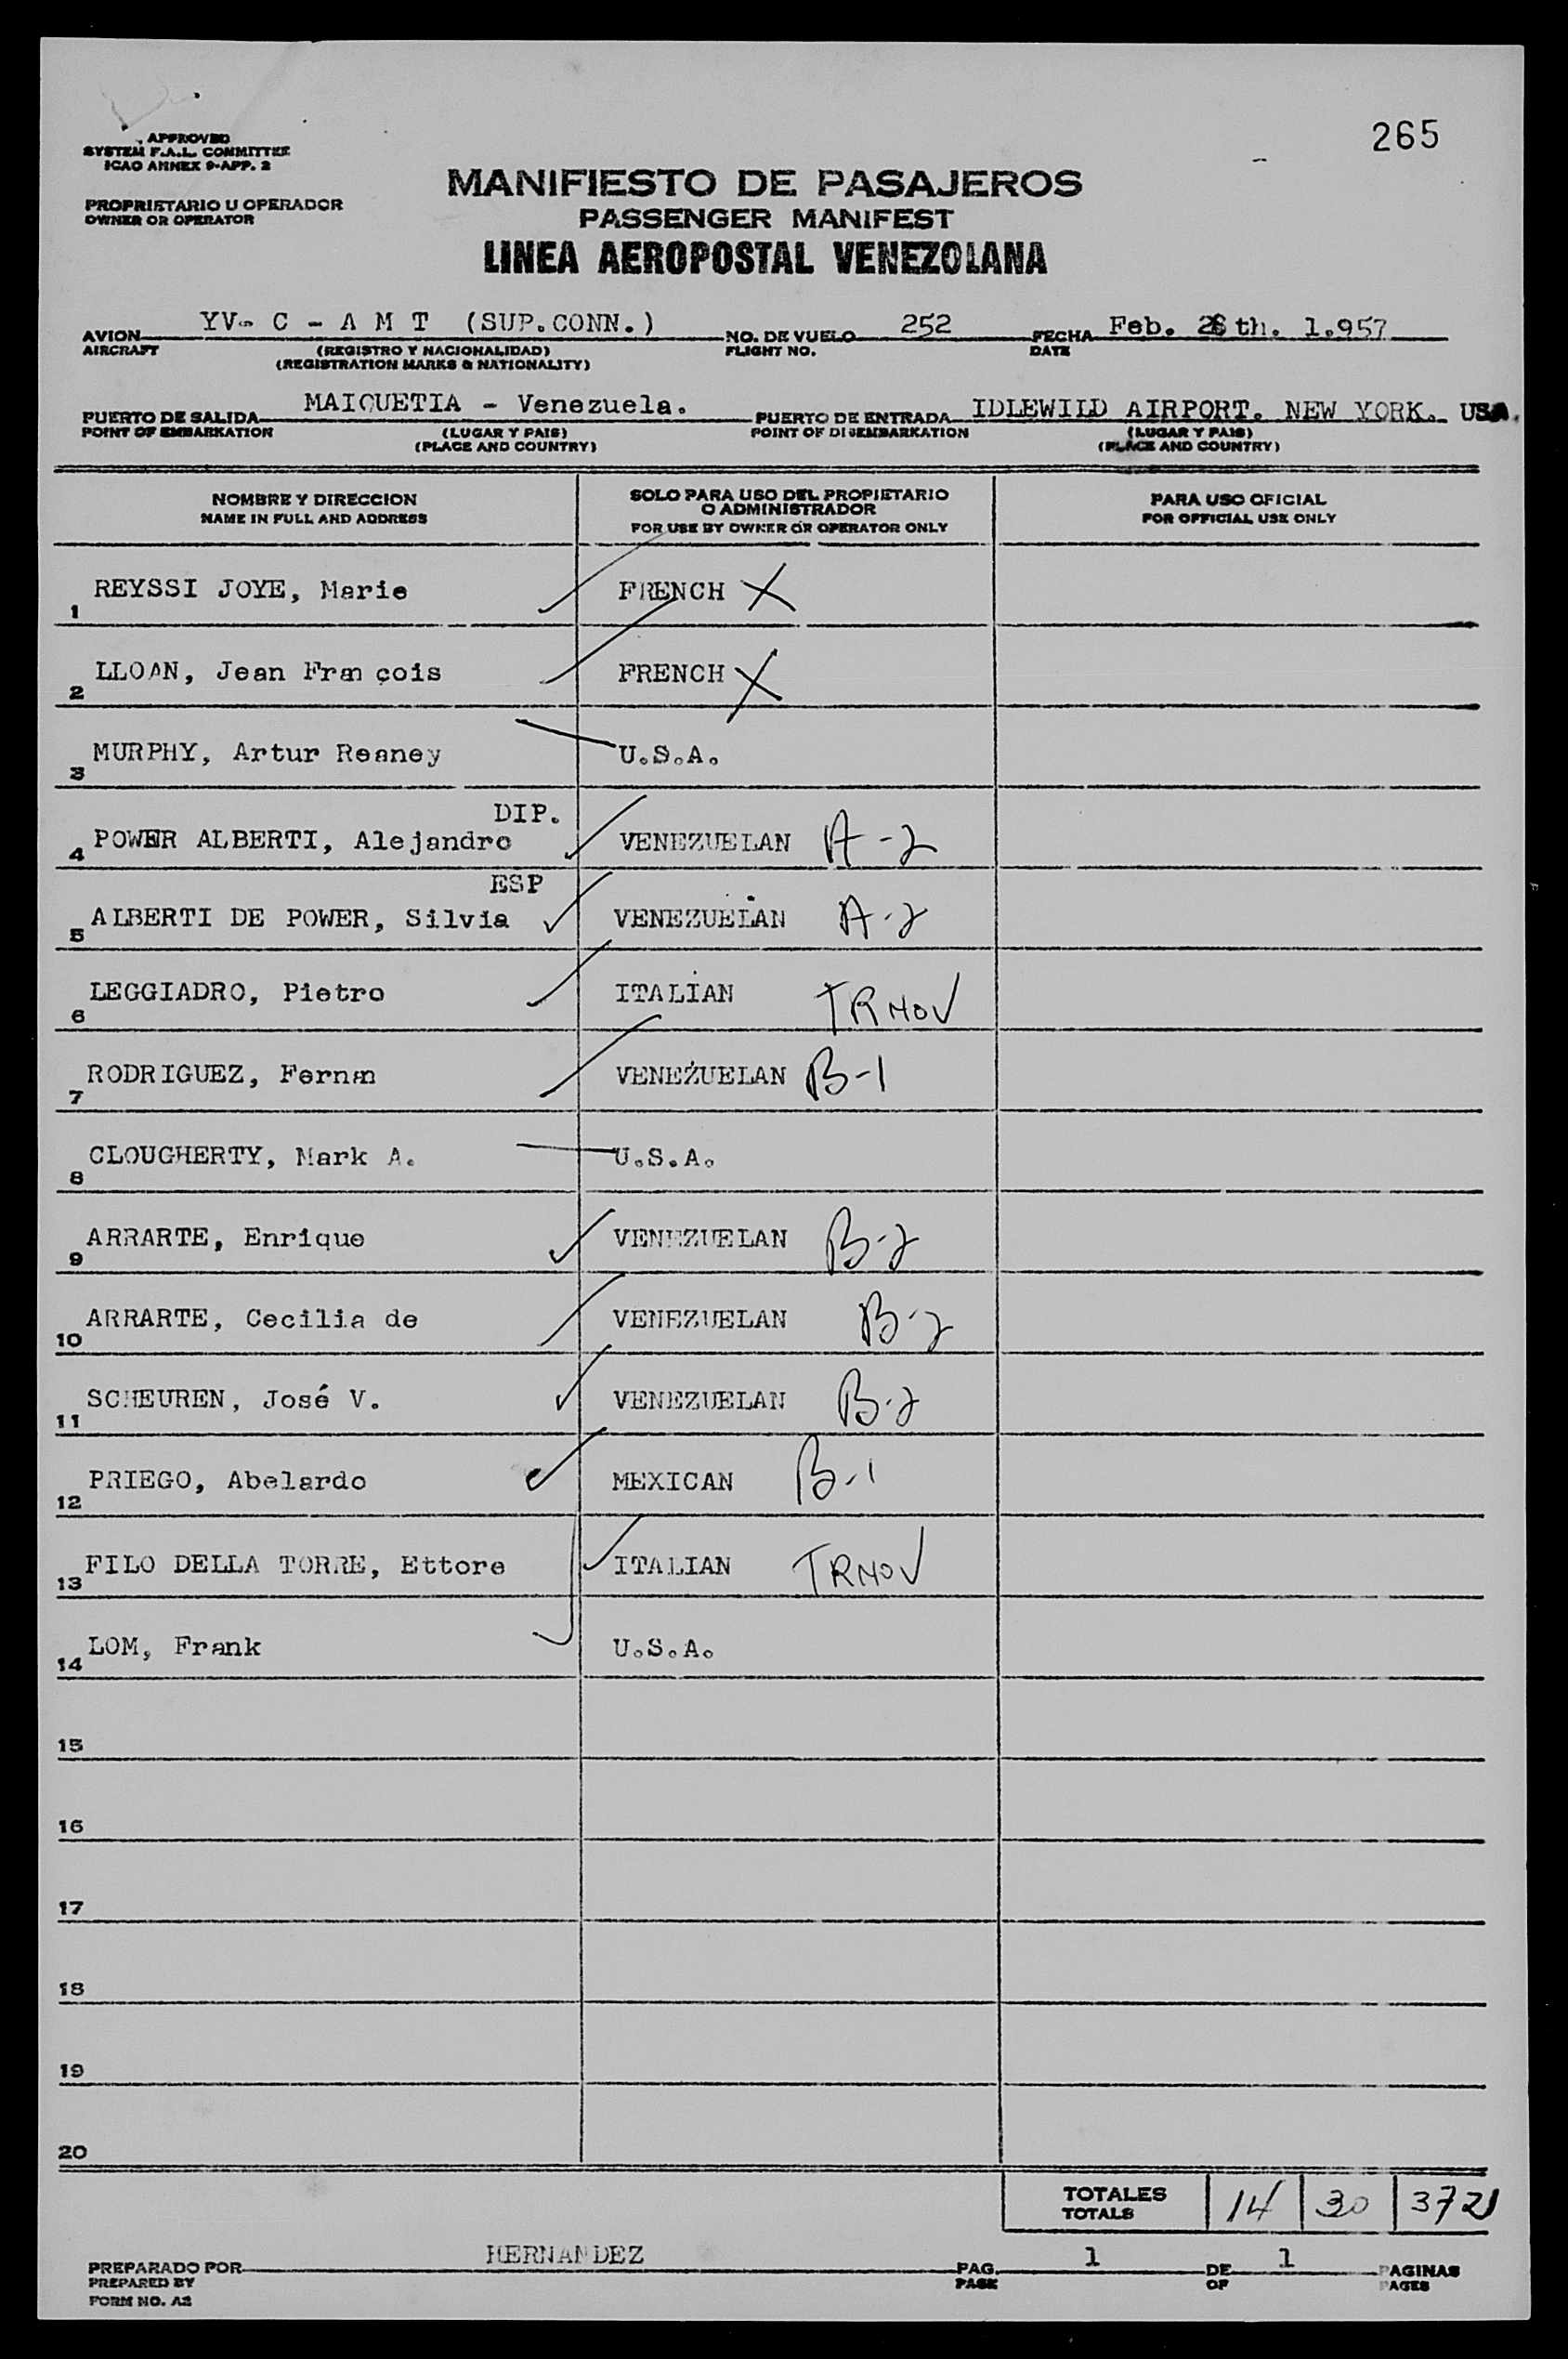 265
APPROVED
SYSTEM F.A.L. COMMITTEE
ICAO ANNEX 9-APP. 2
PROPRIETARIO U OPERADOR
OWNER OR OPERATOR
MANIFIESTO DE PASAJEROS
PASSENGER MANIFEST
LINEA AEROPOSTAL VENEZOLANA
AVION YV- C - A M T (SUP.CONN.) NO. DE VUELO 252 FECHA Feb. th. 1.957
AIRCRAFT (REGISTRO Y NACIONALIDAD) FLIGHT NO. DATE
(REGISTRATION MARKS & NATIONALITY)
PUERTO DE SALIDA MAIQUETIA - Venezuela. PUERTO DE ENTRADA IDLEWILD AIRPORT. NEW YORK. USA.
POINT OF EMBARKATION (LUGAR Y PAIS) POINT OF DISEMBARKATION (LUGAR Y PAIS)
(PLACE AND COUNTRY) (PLACE AND COUNTRY)
NOMBRE Y DIRECCION SOLO PARA USO DEL PROPIETARIO PARA USO OFICIAL
O ADMINISTRADOR
NAME IN FULL AND ADDRESS FOR USE BY OWNER OR OPERATOR ONLY FOR OFFICIAL USE ONLY
1 REYSSI JOYE, Marie FRENCH X
2 LLOAN, Jean Fran çois FRENCH X
3 MURPHY, Artur Reaney U.S.A.
DIP.
4 POWER ALBERTI, Alejandro VENEZUELAN A-2
ESP
5 ALBERTI DE POWER, Silvia VENEZUELAN A-2
6 LEGGIADRO, Pietro ITALIAN TRNOV
7 RODRIGUEZ, Fernan VENEZUELAN B-1
8 CLOUGHERTY, Mark A. U.S.A.
9 ARRARTE, Enrique VENEZUELAN B-2
10 ARRARTE, Cecilia de VENEZUELAN B-2
11 SCHEUREN, José V. VENEZUELAN B-2
12 PRIEGO, Abelardo MEXICAN B-1
13 FILO DELLA TORRE, Ettore ITALIAN TRNOV
14 LOM, Frank U.S.A.
15
16
17
18
19
20
TOTALES 14 30 372
TOTALS
PREPARADO POR HERNANDEZ PAG. 1 DE 1 PAGINAS
PREPARED BY PAGE OF PAGES
FORM NO. A2